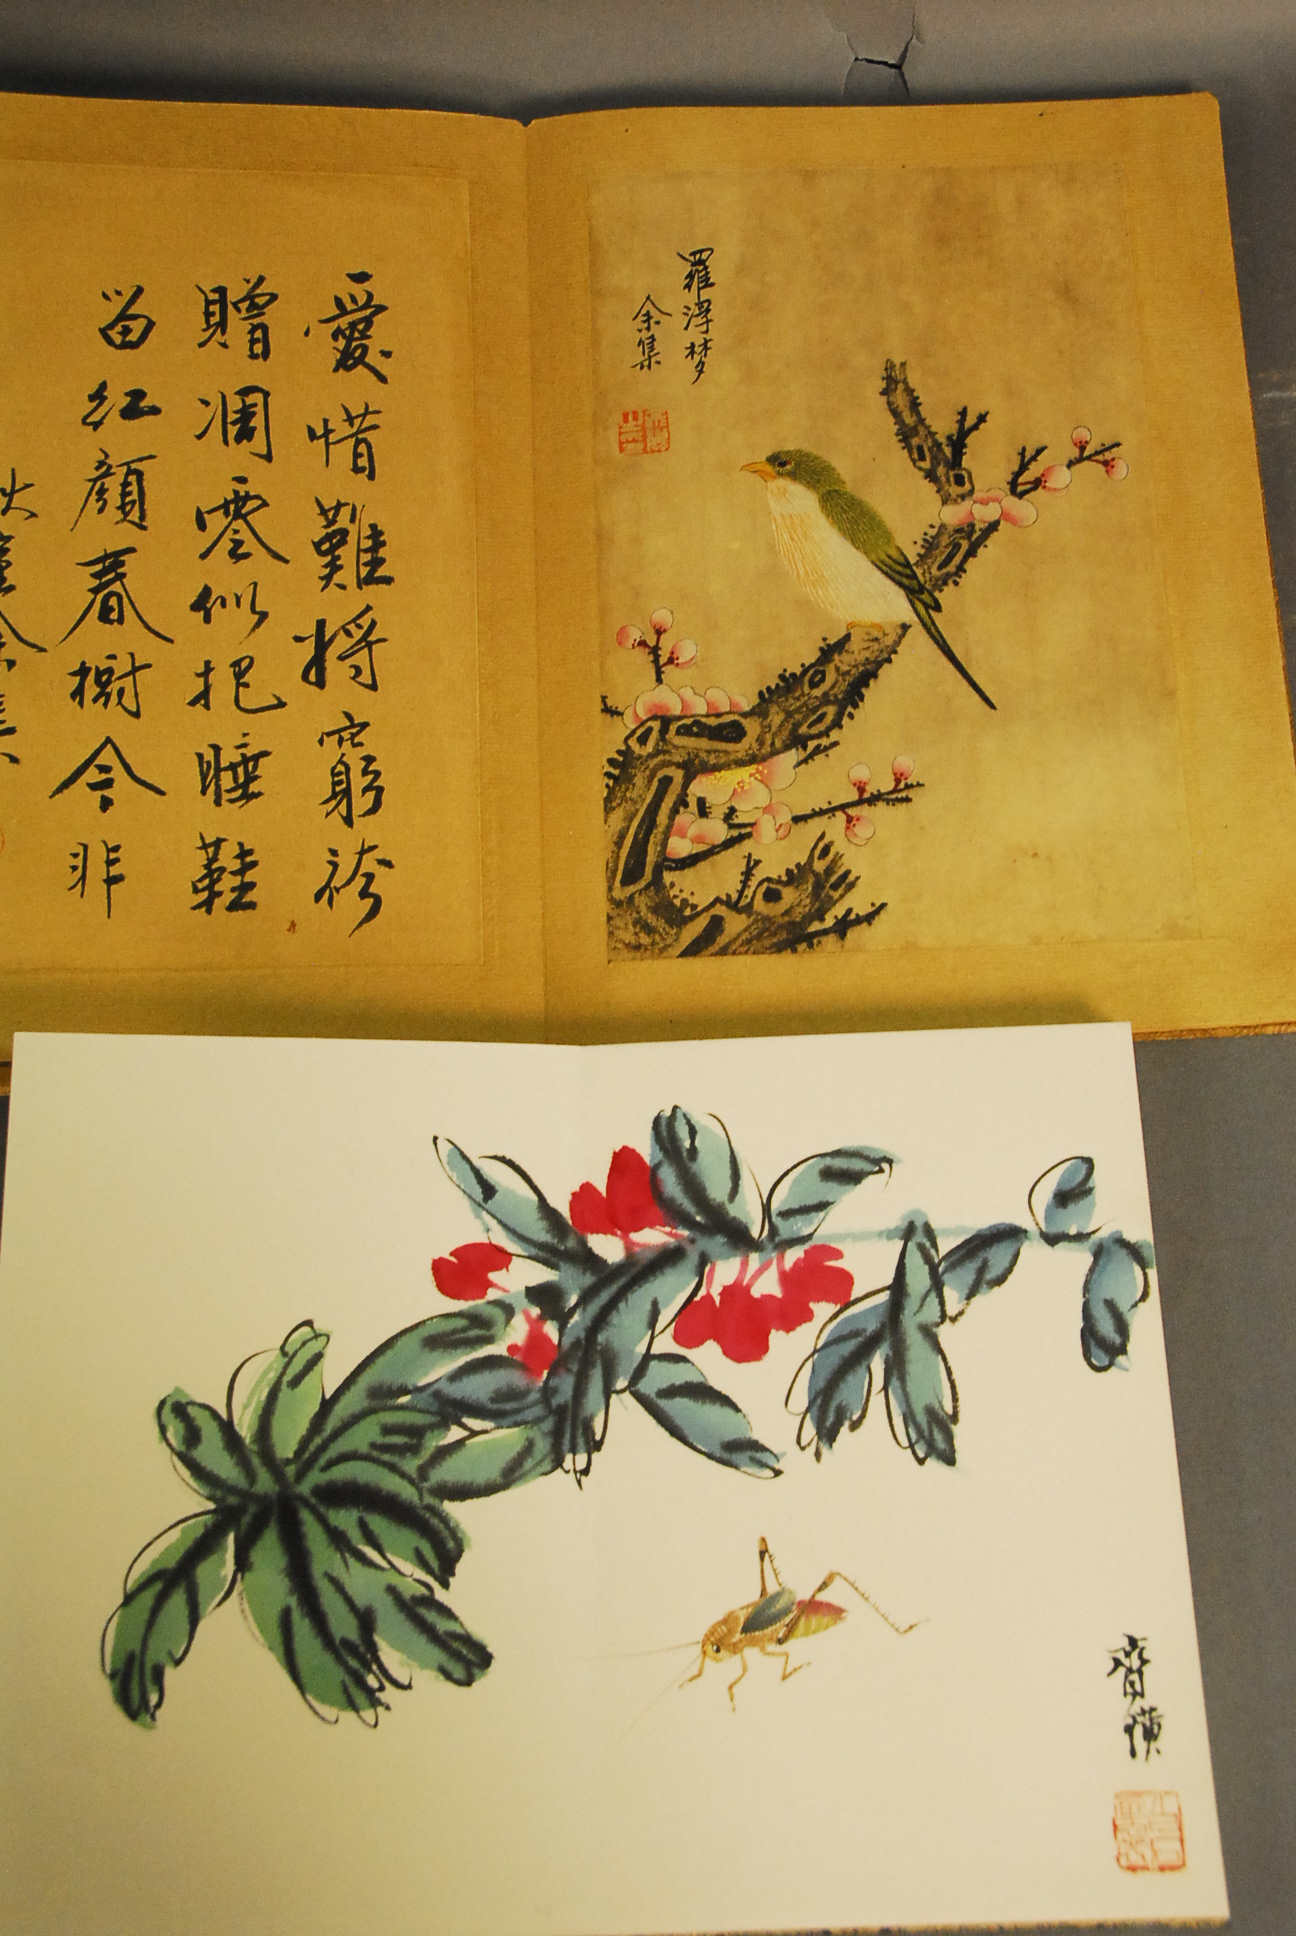 羅浮梦
余集
愛惜難將窮袴
贈凋零似把睡鞋
留紅顏春樹今非
齊璜